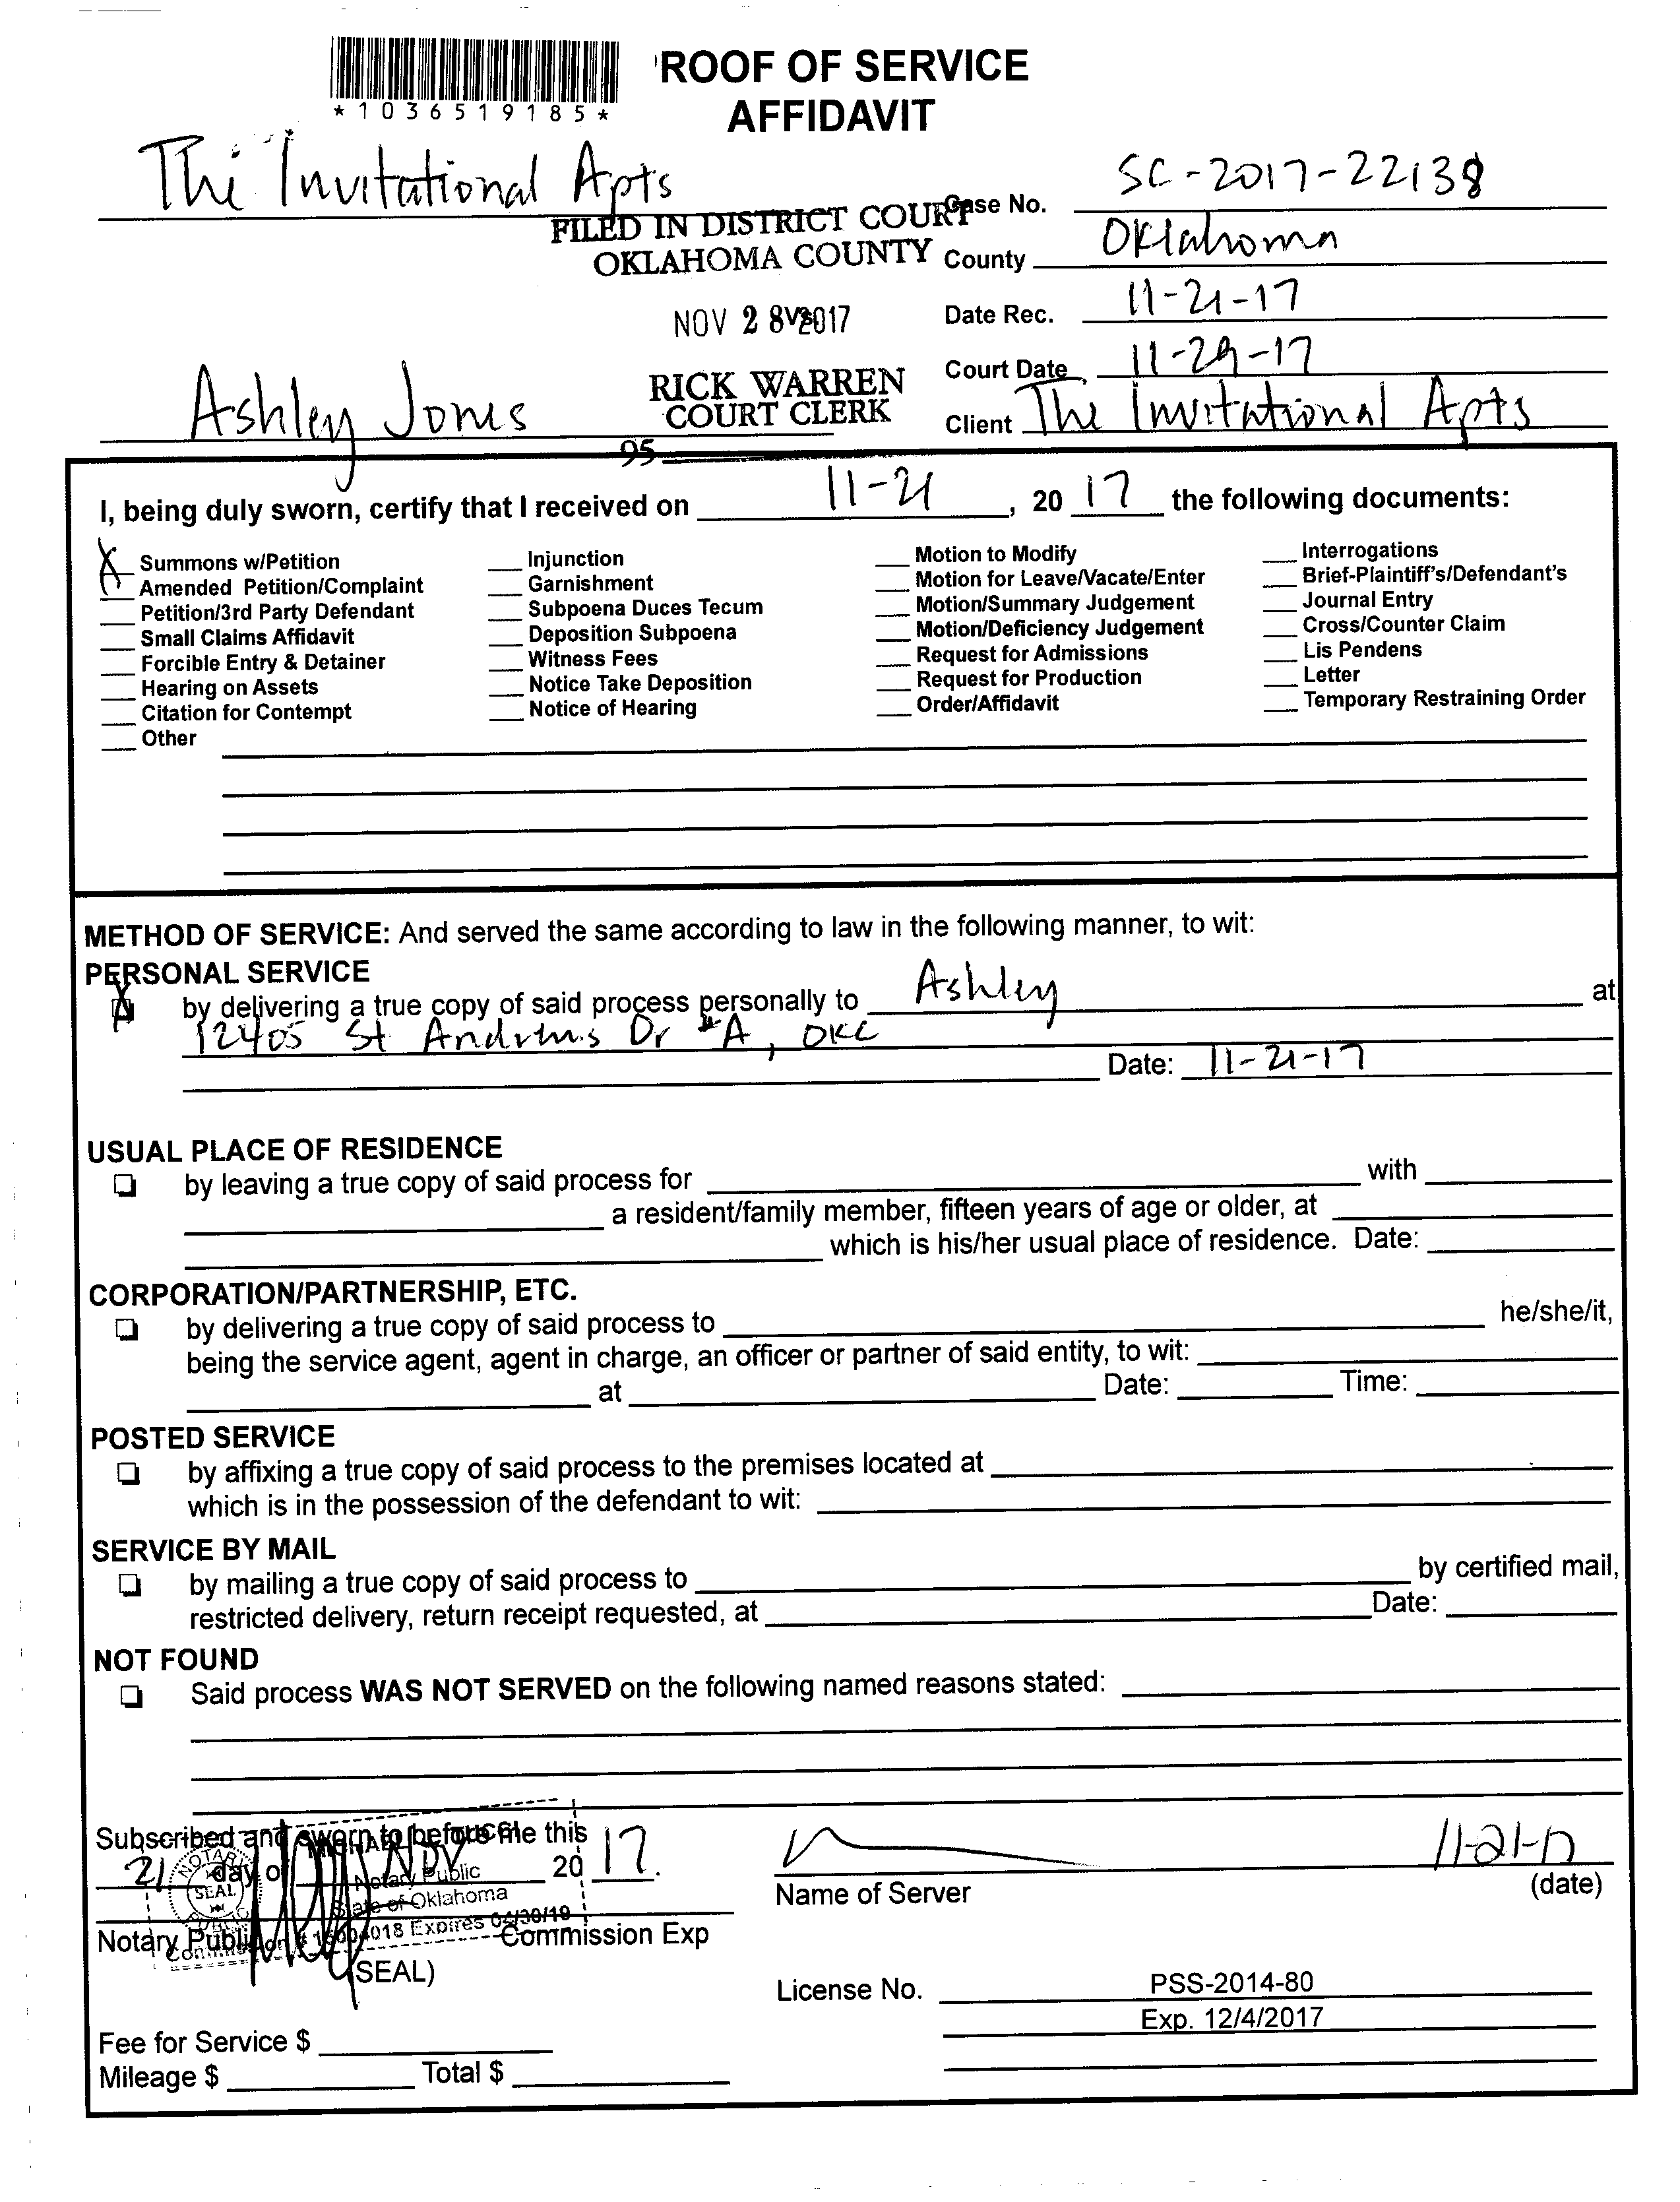 'ROOF OF SERVICE
AFFIDAVIT
*1036519185*
The Invitational Apts
Case No. SC-2017-22138
FILED IN DISTRICT COURT
OKLAHOMA COUNTY
County Oklahoma
NOV 28 2017
vs
Date Rec. 11-21-17
Court Date 11-29-17
RICK WARREN
COURT CLERK
Ashley Jones
Client The Invitational Apts
95
I, being duly sworn, certify that I received on 11-21, 20 17 the following documents:
X Summons w/Petition
Amended Petition/Complaint
Petition/3rd Party Defendant
Small Claims Affidavit
Forcible Entry & Detainer
Hearing on Assets
Citation for Contempt
Other
Injunction
Garnishment
Subpoena Duces Tecum
Deposition Subpoena
Witness Fees
Notice Take Deposition
Notice of Hearing
Motion to Modify
Motion for Leave/Vacate/Enter
Motion/Summary Judgement
Motion/Deficiency Judgement
Request for Admissions
Request for Production
Order/Affidavit
Interrogations
Brief-Plaintiff's/Defendant's
Journal Entry
Cross/Counter Claim
Lis Pendens
Letter
Temporary Restraining Order
METHOD OF SERVICE: And served the same according to law in the following manner, to wit:
PERSONAL SERVICE
X by delivering a true copy of said process personally to Ashley at
12405 St Andrews Dr #A, OKC
Date: 11-21-17
USUAL PLACE OF RESIDENCE
by leaving a true copy of said process for with
a resident/family member, fifteen years of age or older, at
which is his/her usual place of residence. Date:
CORPORATION/PARTNERSHIP, ETC.
by delivering a true copy of said process to he/she/it,
being the service agent, agent in charge, an officer or partner of said entity, to wit:
at Date: Time:
POSTED SERVICE
by affixing a true copy of said process to the premises located at
which is in the possession of the defendant to wit:
SERVICE BY MAIL
by mailing a true copy of said process to by certified mail,
restricted delivery, return receipt requested, at Date:
NOT FOUND
Said process WAS NOT SERVED on the following named reasons stated:
Subscribed and sworn to before me this
21 day of Nov 20 17.
Notary Public
State of Oklahoma
NOTARY PUBLIC
SEAL
Expires 04/30/19
Notary Public Commission Exp
(SEAL)
11-21-17
Name of Server (date)
License No. PSS-2014-80
Exp. 12/4/2017
Fee for Service $
Mileage $ Total $